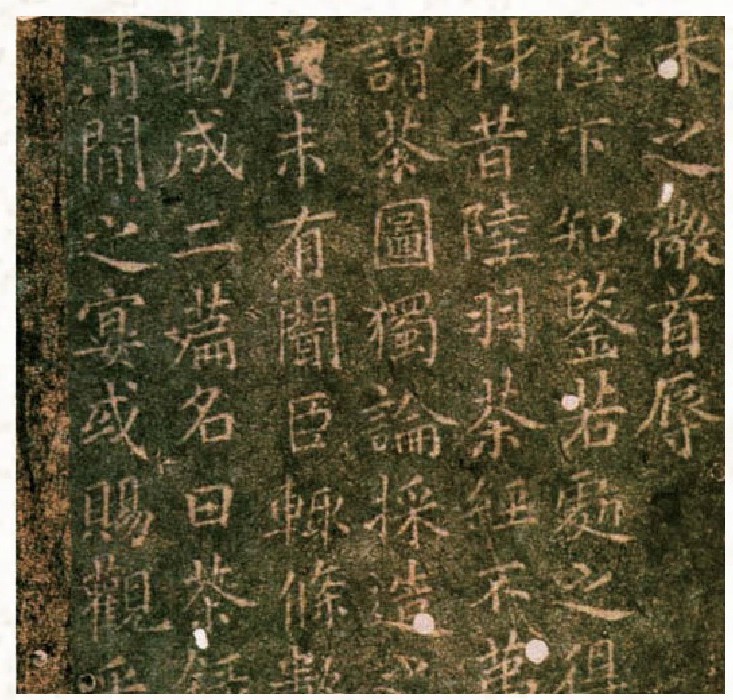 木之微首辱
陛下知鑒若處之得
材昔陸羽茶經不
謂茶圖獨論採造之
曾未有聞臣輒條數
勒成二篇名曰茶錄
清閒之宴或賜觀